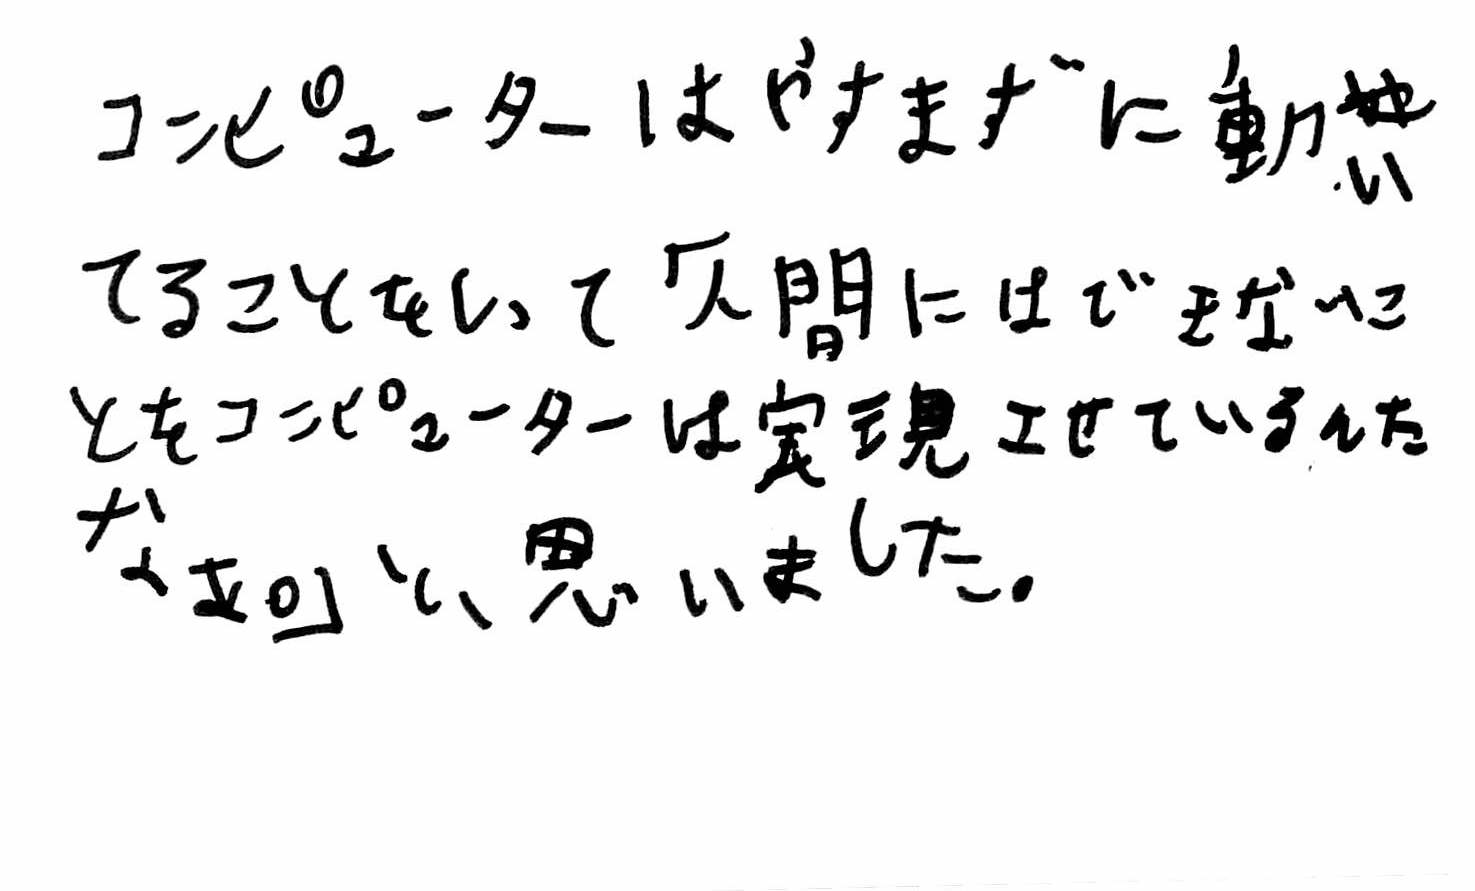 コンピューターはやすまずに動い
てることをしって「人間にはできないこ
とをコンピューターは実現させているんだ
なあ。」と、思いました。